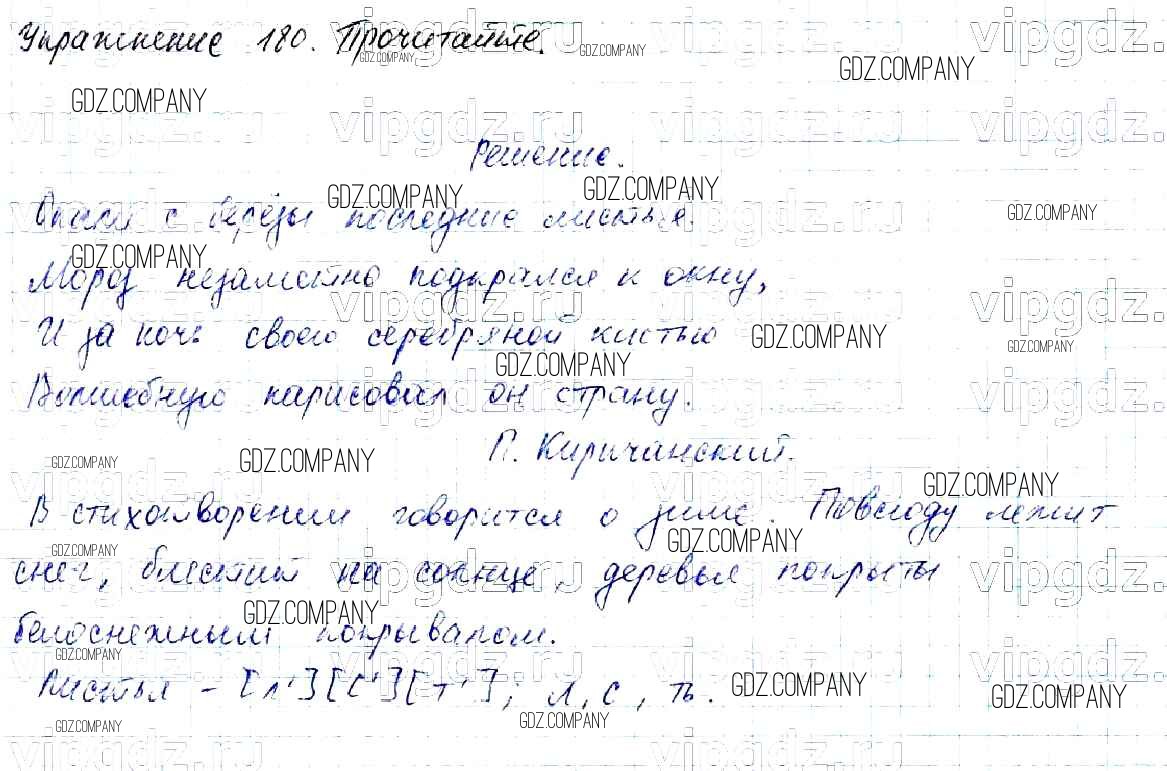 Упражнение 180. Прочитайте.
Решение.
Опали с берёзы последние листья.
Мороз незаметно подкрался к окну,
И за ночь своею серебряной кистью
Волшебную нарисовал он страну.
П. Киричанский.
В стихотворении говорится о зиме. Повсюду лежит
снег, блестит на солнце, деревья покрыты
белоснежным покрывалом.
Листья - [л'][с'][т'], л, с, ть.
vipgdz.ru
GDZ.COMPANY